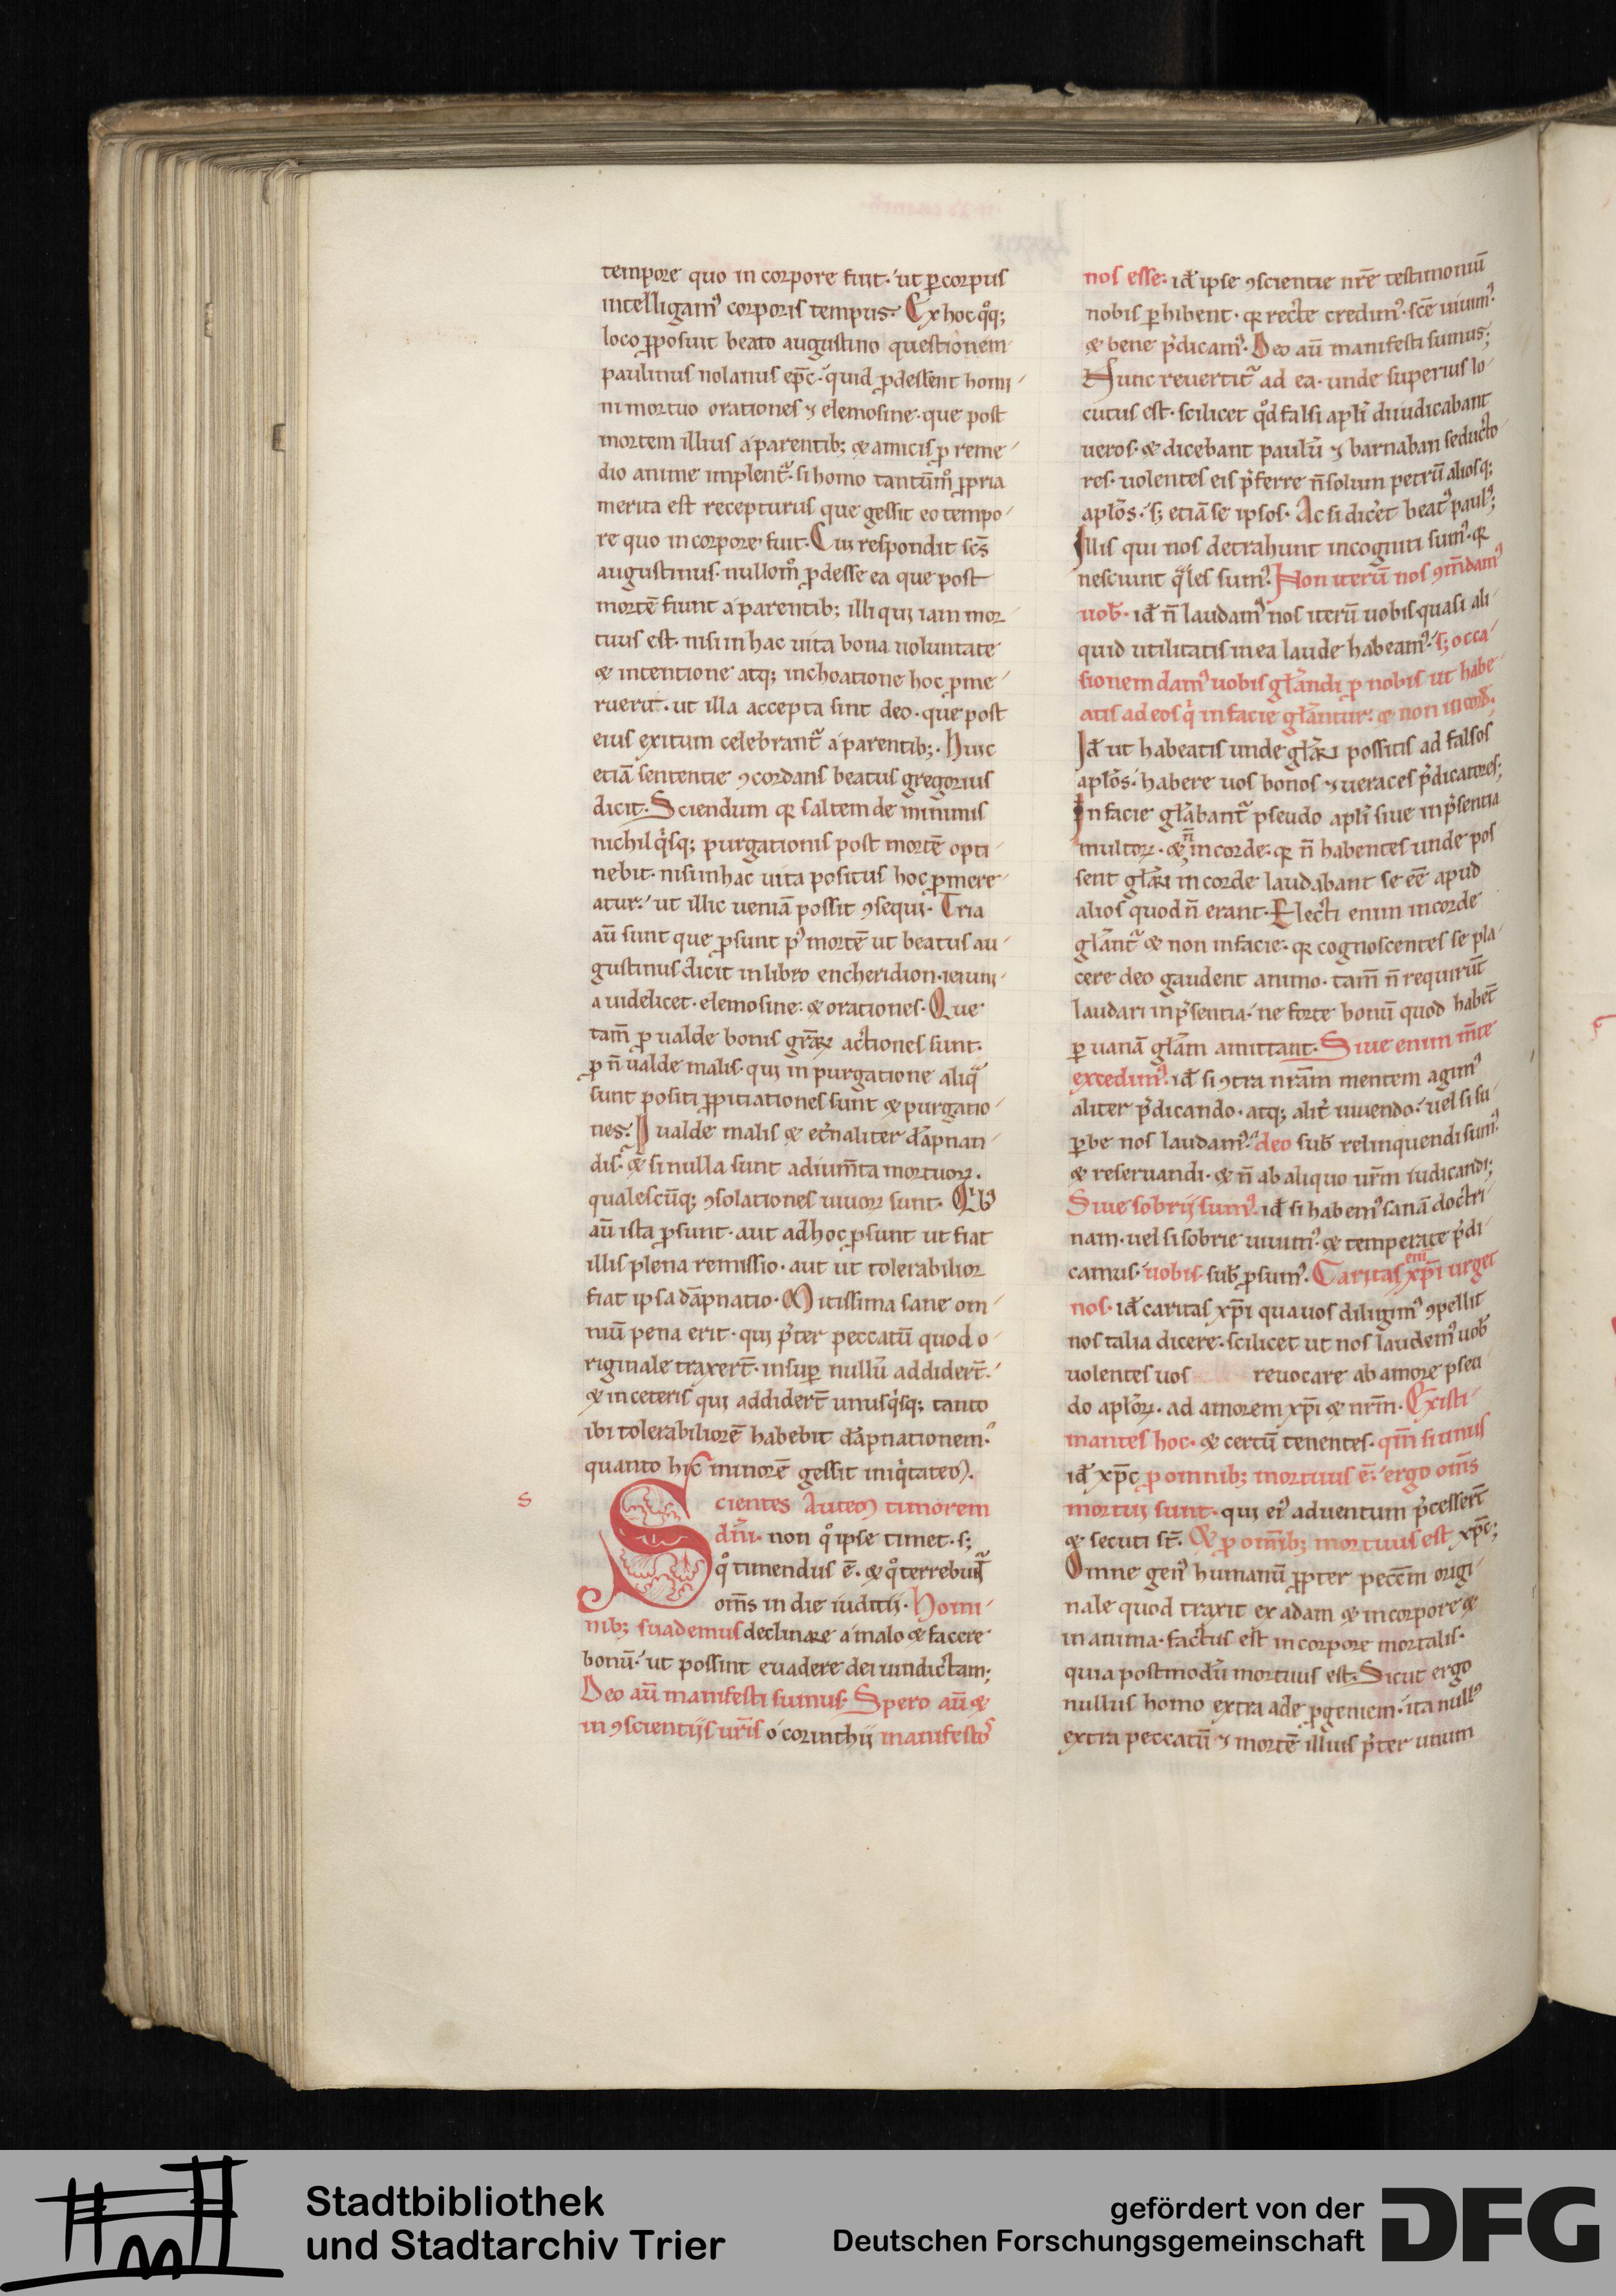 tempore quo in corpore fuit· ut ꝑ corpus
intelligam᷒ corporis tempus· Ex hoc qͦq;
loco ꝓposuit beato augustino questionem
paulinus nolanus ep̄c· quid ꝓdessent homi
ni mortuo orationes ⁊ elemosine· que post
mortem illius a parentib; & amicis ꝓ reme
dio anime implent᷑· si homo tantūmͦ ꝓpria
merita est recepturus que gessit eo tempo
re quo in corpore fuit· Cui respondit sc̄s
augustinus· nullomͦ ꝓdesse ea que post
mortē fiunt a parentib; illi qui iam mor
tuus est· nisi in hac uita bona uoluntate
& intentione atq; inchoatione hoc ꝓme
ruerit· ut illa accepta sint deo· que post
eius exitum celebrant᷑ a parentib;· Huic
etiā sententie ꝯcordans beatus gregorius
dicit· Sciendum qꝛ saltem de minimis
nichil qͥsq; purgationis post mortē opti
nebit· nisi in hac uita positus hoc ꝓmere
atur· ut illic ueniā possit ꝯsequi· Tria
aū sunt que ꝓsunt p᷒ mortē ut beatus au
gustinus dicit in libro encheridion· ieiuni
a uidelicet· elemosine· & orationes· Que
tam̄ ꝓ ualde bonis gr̄aꝝ actiones sunt·
ꝓ n̄ ualde malis· qui in purgatione aliqͣ
sunt positi ꝓpitiationes sunt & purgatio
nes· I ualde malis & et̉naliter dāpnan
dis· & si nulla sunt adium̄ta mortuoꝝ·
qualescūq; ꝯsolationes uiuoꝝ sunt· Qͥb᷒
aū ista ꝓsunt· aut ad hoc ꝓsunt ut fiat
illis plena remissio· aut ut tolerabilior
fiat ipsa dāpnatio· Mitissima sane om
niū pena erit· qui p̄ter peccatū quod o
riginale traxert̄· insuꝑ nullū addidert̄·
& in ceteris qui addidert̄ unusqͥsq; tanto
ibi tolerabiliorē habebit dāpnationem·
quanto hic minorē gessit iniqͥtatem·
s
Scientes Autem timorem
dn̄i· non qͦ ipse timet· s;
qͦ timendus ē· & qͦ terrebunt᷑
om̄s in die iuditij· Homi
nib; suademus declinare a malo & facere
bonū· ut possint euadere dei uindictam;
Deo aū manifesti sumus· Spero aū &
in ꝯscientijs ur̄is o corinthij manifestos
nos esse· id̄ ipse ꝯscientie nr̄e testimoniū
nobis ꝑhibent· qꝛ recte credim᷒· sc̄e uiuim᷒·
& bene p̄dicam᷒· Deo aū manifesti sumus;
Nunc reuertit᷑ ad ea· unde superius lo
cutus est· scilicet qͦd falsi apl̄i diiudicabant
ueros· & dicebant paulū ⁊ barnaban seducto
res· uolentes eis p̄ferre n̄ solum petrū aliosq;
apl̄os· s; etiā se ipsos· Ac si dic̉et beat᷒ paul᷒;
Illis qui nos detrahunt incogniti sum᷒· qꝛ
nesciunt qͣles sum᷒· Non iterū nos ꝯm̄dam᷒
uob̄· id̄ n̄ laudam᷒ nos iterū uobis quasi ali
quid utilitatis in ea laude habeam᷒· s; occa
sionem dam᷒ uobis gl̄andi ꝓ nobis ut habe
atis ad eos qͥ in facie gl̄antur· & non in cord̄·
Id̄ ut habeatis unde gl̄ari possitis ad falsos
apl̄os· habere uos bonos ⁊ ueraces p̄dicatores;
In facie gl̄abant᷑ pseudo apl̄i siue in p̄sentia
multoꝝ· & n̄ in corde· qꝛ n̄ habentes unde pos
sent gl̄ari in corde laudabant se eē apud
alios quod n̄ erant· Electi enim in corde
gl̄ant᷑ & non in facie· qꝛ cognoscentes se pla
cere deo gaudent animo· tam̄ n̄ requirūt
laudari in p̄sentia· ne forte bonū quod habet̄
ꝑ uanā gl̄am amittant· Siue enim m̄te
excedim᷒· id̄ si ꝯtra nr̄am mentem agim᷒
aliter p̄dicando· atq; alit̉ uiuendo· uel si su
ꝑbe nos laudam᷒· deo sub̄ relinquendi sum᷒
& reseruandi· & n̄ ab aliquo ur̄m iudicandi;
Siue sobrij sum᷒· id̄ si habem᷒ sanā doctri
nam· uel si sobrie uiuim᷒· & temperate p̄di
camus· uobis· sub̄ ꝓsum᷒· Caritas eni xp̄i urget
nos· id̄ caritas xp̄i qua uos diligim᷒ ꝯpellit
nos talia dicere· scilicet ut nos laudem᷒ uob̄
uolentes uos reuocare ab amore pseu
do apl̄oꝝ· ad amorem xp̄i & nr̄m· Existi
mantes hoc· & certū tenentes· qm̄ si unus
id̄ xp̄c ꝓ omnib; mortuus ē· ergo om̄s
mortui sunt· qui ei᷒ aduentum p̄cessert̄
& secuti st̄· & ꝓ om̄ib; mortuus est xp̄c;
Omne gen᷒ humanū ꝓpter pecc̄m origi
nale quod traxit ex adam & in corpore &
in anima· factus est in corpore mortalis·
quia postmodū mortuus est· Sicut ergo
nullus homo extra ade ꝓgeniem· ita null᷒
extra peccatū ⁊ mortē illius p̄ter unum
Stadtbibliothek
und Stadtarchiv Trier
gefördert von der
Deutschen Forschungsgemeinschaft
DFG